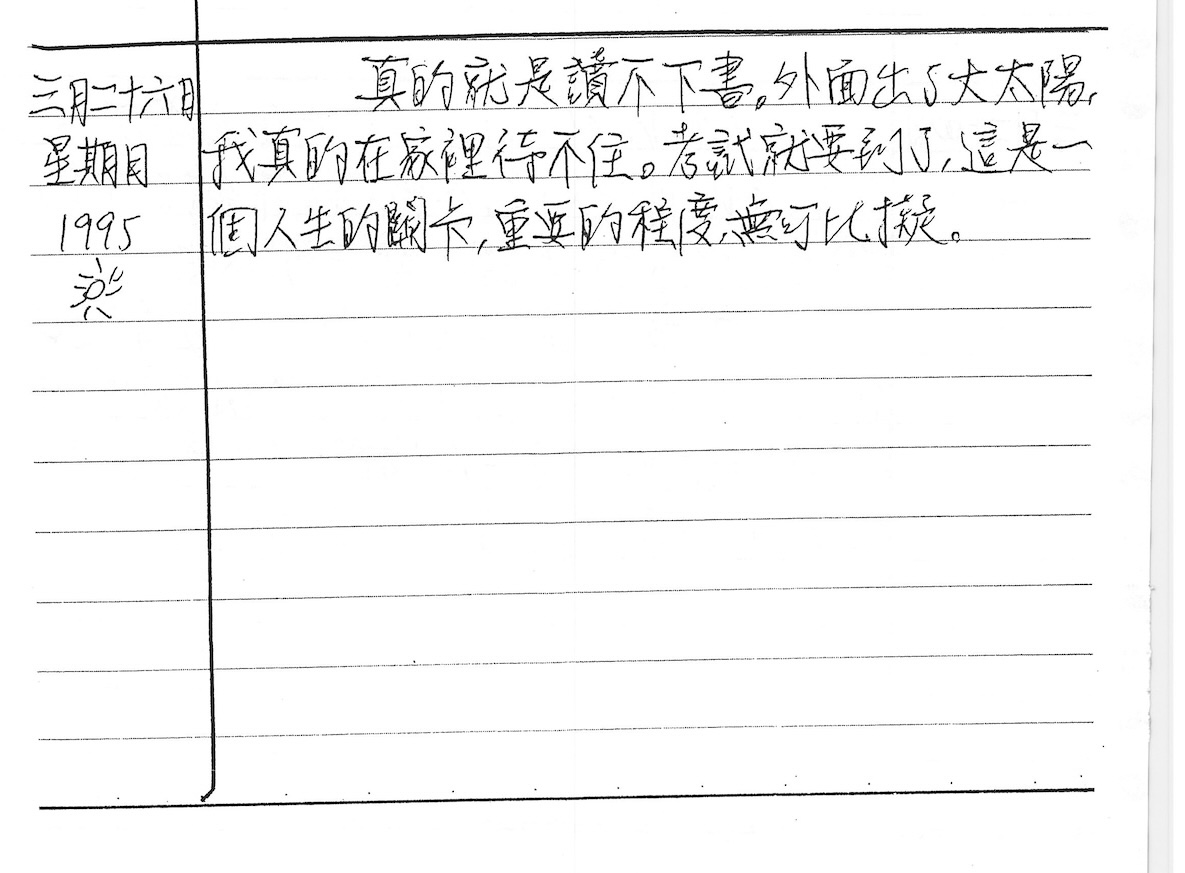 三月二十六日
星期日
1995
真的就是讀不下書。外面出了大太陽,
我真的在家裡待不住。考試就要到了,這是一
個人生的關卡,重要的程度,無可比擬。